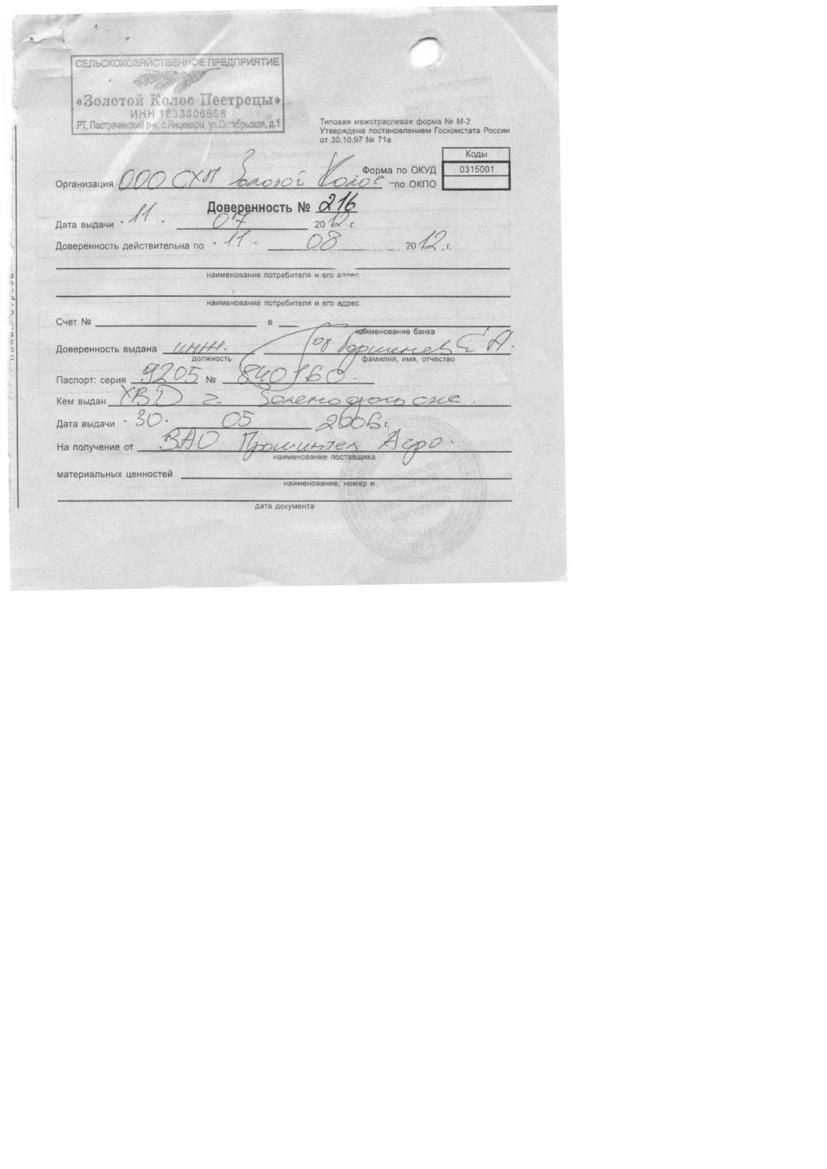 СЕЛЬСКОХОЗЯЙСТВЕННОЕ ПРЕДПРИЯТИЕ
«Золотой Колос Пестрецы»
ИНН 1633606698
РТ, Пестречинский р-н, с.Янцевары, ул.Октябрьская, д.1
Типовая межотраслевая форма № М-2
Утверждена постановлением Госкомстата России
от 30.10.97 № 71а
Коды
Форма по ОКУД 0315001
Организация ООО СХП Золотой Колос по ОКПО
Доверенность № 216
Дата выдачи 11 07 2012 г.
Доверенность действительна по 11 08 2012 г.
наименование потребителя и его адрес
наименование потребителя и его адрес
Счет № в
наименование банка
Доверенность выдана инж. Е А.
должность фамилия, имя, отчество
Паспорт: серия 9205 № 840160
Кем выдан г. Зеленодольска
Дата выдачи 30 05 2006 г.
На получение от ЗАО Агро
наименование поставщика
материальных ценностей
наименование, номер и
дата документа